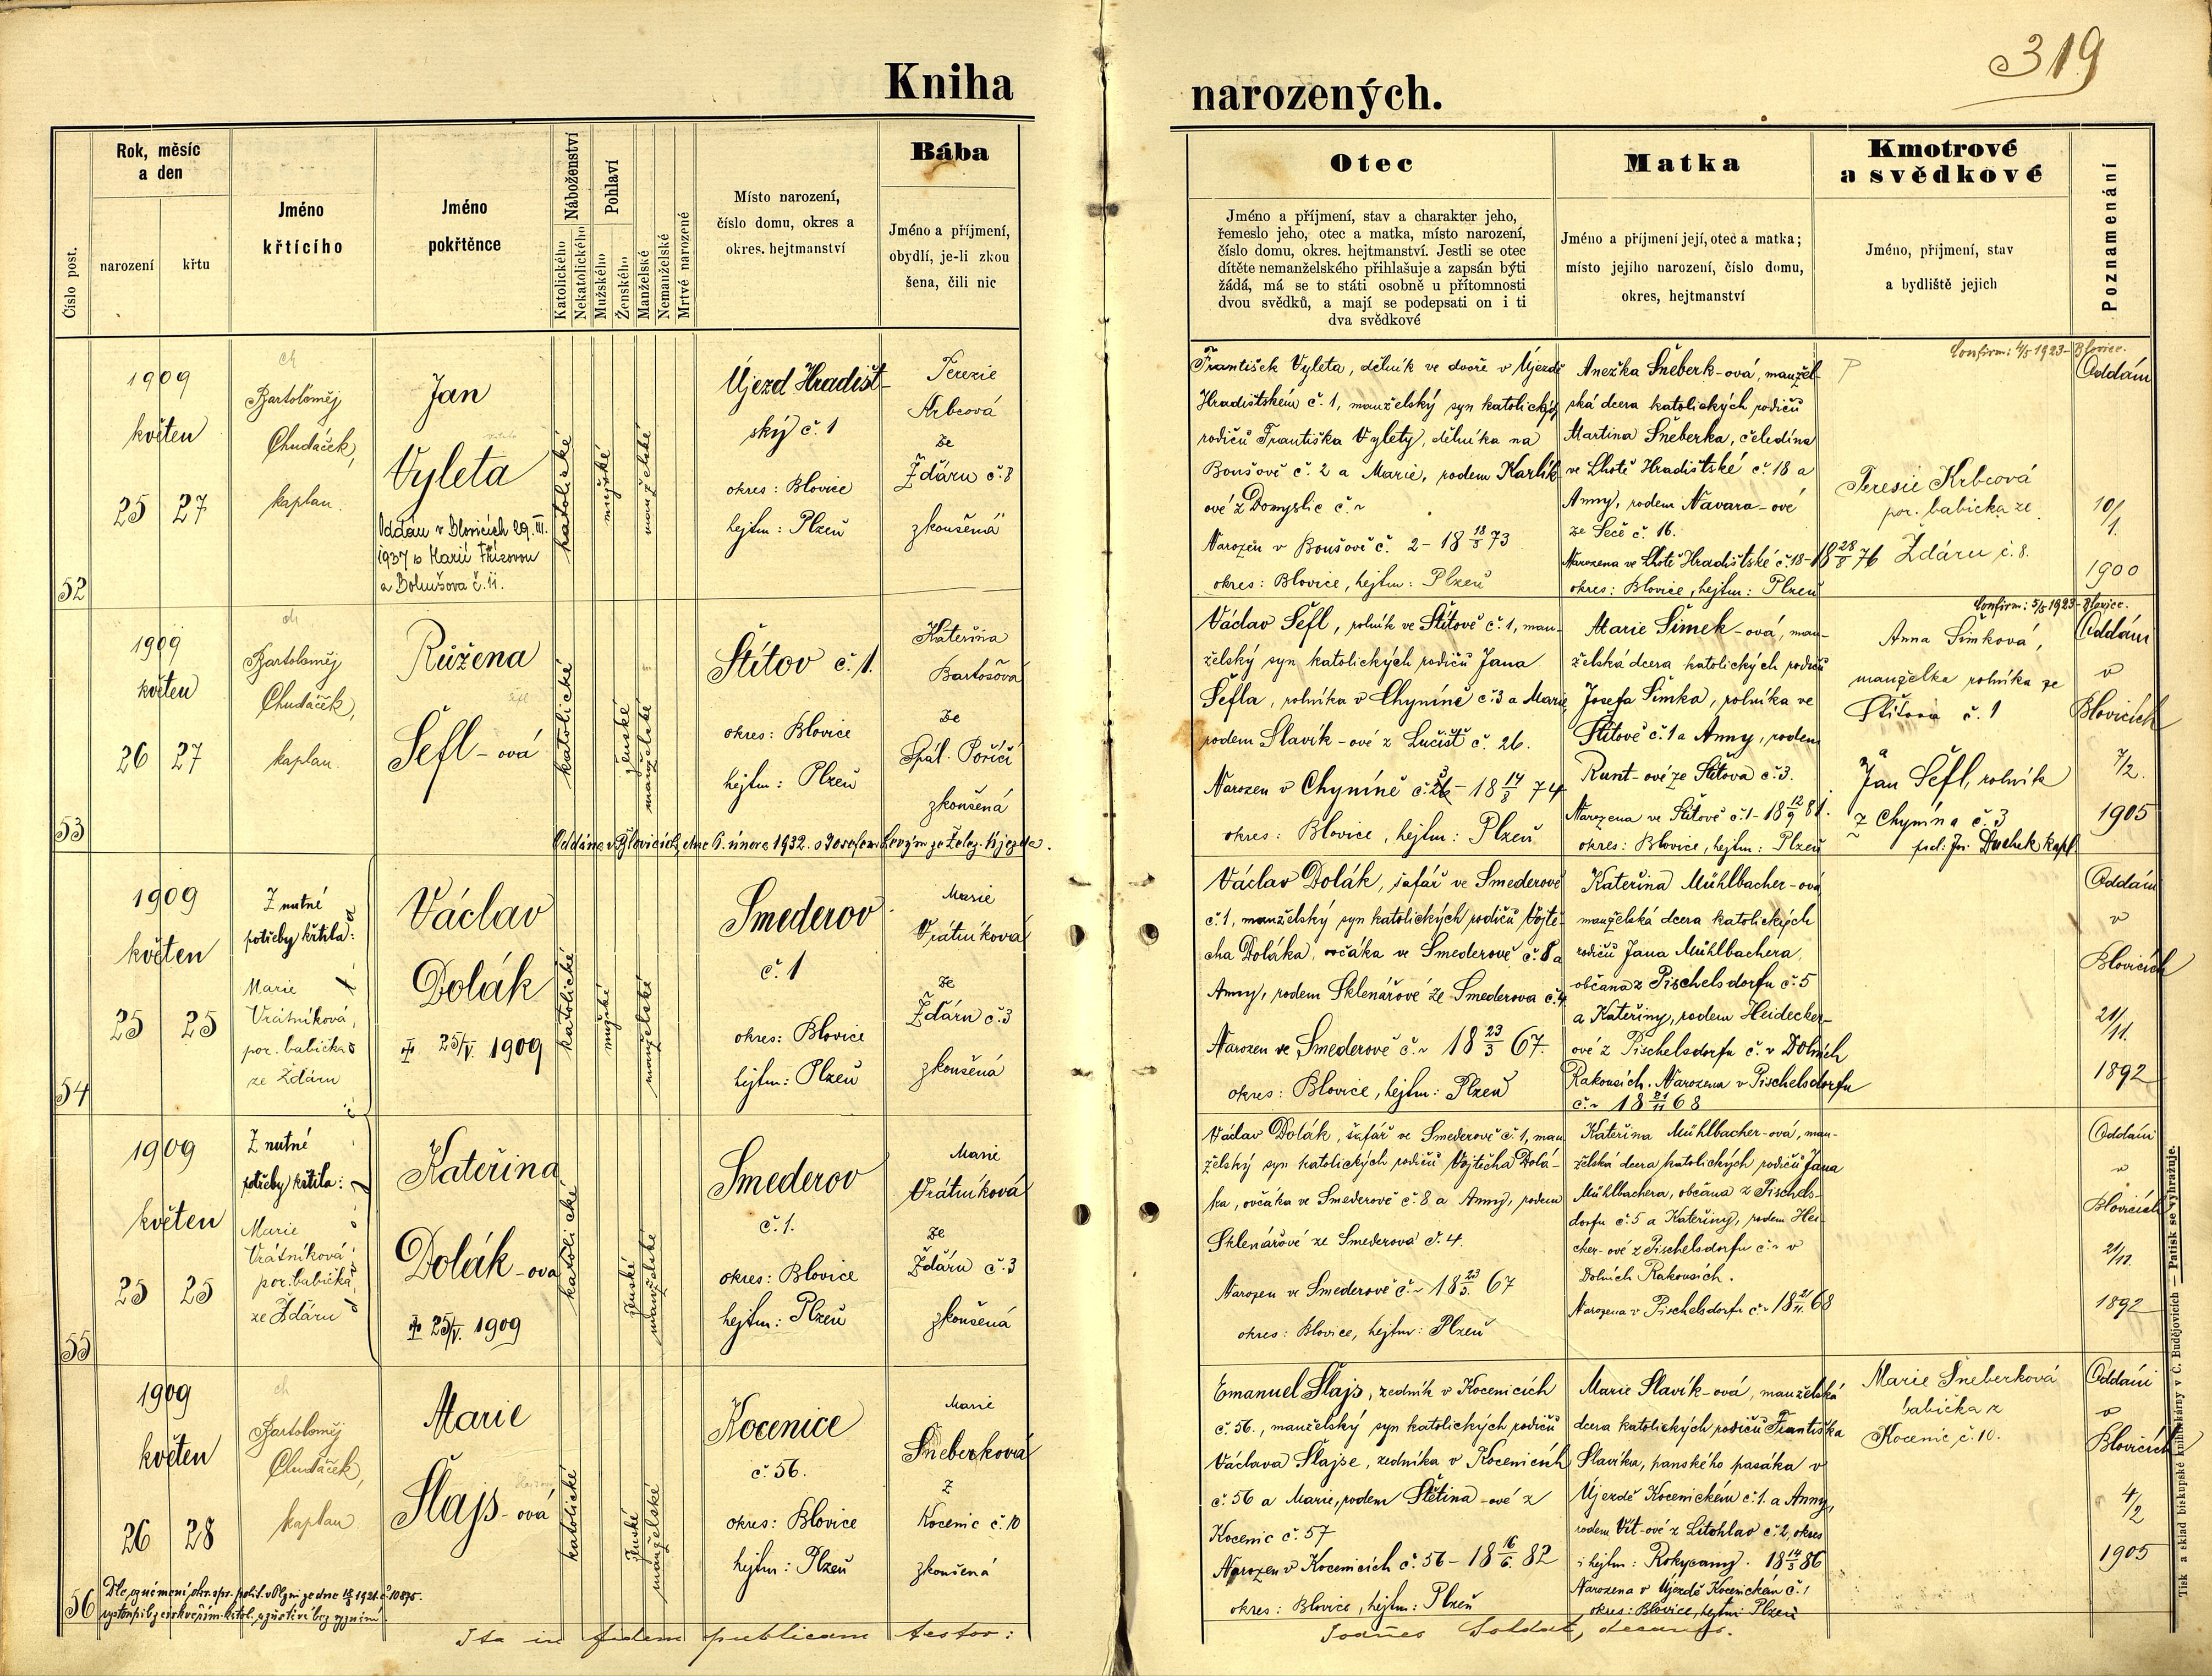 319
Kniha narozených.
Číslo post.
Rok, měsíc
a den
narození
křtu
Jméno
křtícího
Jméno
pokřtěnce
Náboženství
Katolického
Nekatolického
Pohlaví
Mužského
Ženského
Manželské
Nemanželské
Mrtvé narozené
Místo narození,
číslo domu, okres a
okres. hejtmanství
Bába
Jméno a příjmení,
obydlí, je-li zkou
šena, čili nic
Otec
Jméno a příjmení, stav a charakter jeho,
řemeslo jeho, otec a matka, místo narození,
číslo domu, okres. hejtmanství. Jestli se otec
dítěte nemanželského přihlašuje a zapsán býti
žádá, má se to státi osobně u přítomnosti
dvou svědků, a mají se podepsati on i ti
dva svědkové
Matka
Jméno a příjmení její, otec a matka;
místo jejího narození, číslo domu,
okres, hejtmanství
Kmotrové
a svědkové
Jméno, příjmení, stav
a bydliště jejich
Poznamenání
52
1909
květen
25 27
ch
Bartoloměj
Chudáček,
kaplan.
Jan
Vyleta
Oddán v Blovicích 29. III.
1937 s Marií
č. 11.
katolické
mužské
manželské
Újezd Hradišt-
ský č. 1
okres: Blovice
hejtm: Plzeň
Terezie
Krbcová
ze
Ždáru č. 8
zkoušená
František Vyleta, dělník ve dvoře v Újezdě
Hradištském č. 1, manželský syn katolických
rodičů Františka Vylety, dělníka na
Boušově č. 2 a Marie, rodem Karlík-
ové z Domyslic č. ~
Narozen v Boušově č. 2 - 18 18/3 73
okres: Blovice, hejtm: Plzeň
Anežka Šneberk-ová, manžel-
ská dcera katolických rodičů
Martina Šneberka, čeledína
ve Lhotě Hradištské č. 18 a
Anny, rodem Navara-ové
ze Seče č. 16.
Narozena ve Lhotě Hradištské č. 18 - 18 28/8 76
okres: Blovice, hejtm: Plzeň
Confirm: 4/5 1923 - Blovice.
Teresie Krbcová
por. babička ze
Ždáru č. 8.
Oddáni
10/1.
1900
53
1909
květen
26 27
ch
Bartoloměj
Chudáček,
kaplan.
Růžena
Šefl-ová
katolické
ženské
manželské
Štítov č. 1.
okres: Blovice
hejtm: Plzeň
Kateřina
Bartošová
ze
Spál. Poříčí
zkoušená
Oddána v Blovicích, dne 6. února 1932. s Josefem
Václav Šefl, rolník ve Štítově č. 1, man-
želský syn katolických rodičů Jana
Šefla, rolníka v Chyníně č. 3 a Marie,
rodem Slavík-ové z Lučišť č. 26.
Narozen v Chyníně č. 3 - 18 14/8 74
okres: Blovice, hejtm: Plzeň
Marie Šimek-ová, man-
želská dcera katolických rodičů
Josefa Šimka, rolníka ve
Štítově č. 1 a Anny, rodem
Runt-ové ze Štítova č. 3.
Narozena ve Štítově č. 1 - 18 12/9 81.
okres: Blovice, hejtm: Plzeň
Confirm: 5/5 1923 - Blovice.
Anna Šimková,
manželka rolníka ze
Štítova č. 1
a
Jan Šefl, rolník
z Chynína č. 3
Oddáni
v
Blovicích
7/2.
1905
54
1909
květen
25 25
Z nutné
potřeby křtila:
Marie
Vrátníková,
por. babička
ze Ždáru
Václav
Dolák
25/V. 1909
katolické
mužské
manželské
Smederov
č. 1
okres: Blovice
hejtm: Plzeň
Marie
Vrátníková
ze
Ždáru č. 3
zkoušená
Václav Dolák, šafář ve Smederově
č. 1, manželský syn katolických rodičů Vojtě-
cha Doláka, ovčáka ve Smederově č. 8 a
Anny, rodem Sklenářové ze Smederova č. 4
Narozen ve Smederově č. ~ 18 23/3 67.
okres: Blovice, hejtm: Plzeň
Kateřina Mühlbacher-ová
manželská dcera katolických
rodičů Jana Mühlbachera,
občana z Pischelsdorfu č. 5
a Kateřiny, rodem Heidecker-
ové z Pischelsdorfu č. ~ v Dolních
Rakousích. Narozena v Pischelsdorfu
č. ~ 18 21/11 68
Oddáni
v
Blovicích
21/11.
1892
55
1909
květen
25 25
Z nutné
potřeby křtila:
Marie
Vrátníková
por. babička
ze Ždáru
Kateřina
Dolák-ová
25/V. 1909
katolické
ženské
manželské
Smederov
č. 1.
okres: Blovice
hejtm: Plzeň
Marie
Vrátníková
ze
Ždáru č. 3
zkoušená
Václav Dolák, šafář ve Smederově č. 1, man
želský syn katolických rodičů Vojtěcha Dolá-
ka, ovčáka ve Smederově č. 8 a Anny, rodem
Sklenářové ze Smederova č. 4.
Narozen ve Smederově č. ~ 18 23/3. 67
okres: Blovice, hejtm: Plzeň
Kateřina Mühlbacher-ová, man-
želská dcera katolických rodičů Jana
Mühlbachera, občana z Pischels-
dorfu č. 5 a Kateřiny, rodem Hei-
cker-ové z Pischelsdorfu č. ~ v
Dolních Rakousích.
Narozena v Pischelsdorfu č. ~ 18 21/11. 68
Oddáni
v
Blovicích
21/11.
1892
56
1909
květen
26 28
ch
Bartoloměj
Chudáček,
kaplan
Marie
Šlajs-ová
katolické
ženské
manželské
Kocenice
č. 56.
okres: Blovice
hejtm: Plzeň
Marie
Šneberková
z
Kocenic č. 10
zkoušená
Emanuel Šlajs, zedník v Kocenicích
č. 56., manželský syn katolických rodičů
Václava Šlajse, zedníka v Kocenicích
č. 56 a Marie, rodem Štětina-ové z
Kocenic č. 57
Narozen v Kocenicích č. 56 - 18 16/6. 82
okres: Blovice, hejtm: Plzeň
Marie Slavík-ová, manželská
dcera katolických rodičů Františka
Slavíka, panského pasáka v
Újezdě Kocenickém č. 1. a Anny,
rodem Vít-ové z Litohlav č. 2, okres
i hejtm: Rokycany. 18 14/3 86
Narozena v Újezdě Kocenickém č. 1
okres: Blovice, hejtm: Plzeň
Marie Šneberková
babička z
Kocenic č. 10.
Oddáni
v
Blovicích
4/2
1905
Ita in fidem publicam testor:
Joañes Soldát, decanus.
Tisk a sklad biskupské knihtiskárny v Č. Budějovicích — Patisk se vyhražuje.